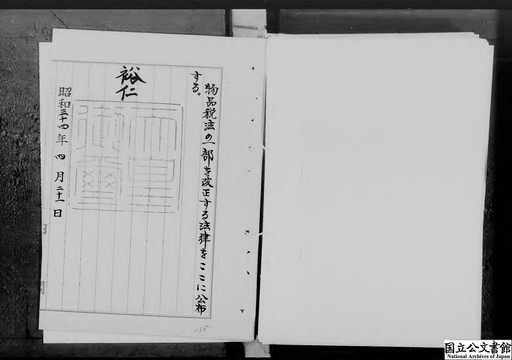 物品税法の一部を改正する法律をここに公布
する。
裕仁
天皇御璽
昭和三十四年四月二十一日
国立公文書館
National Archives of Japan